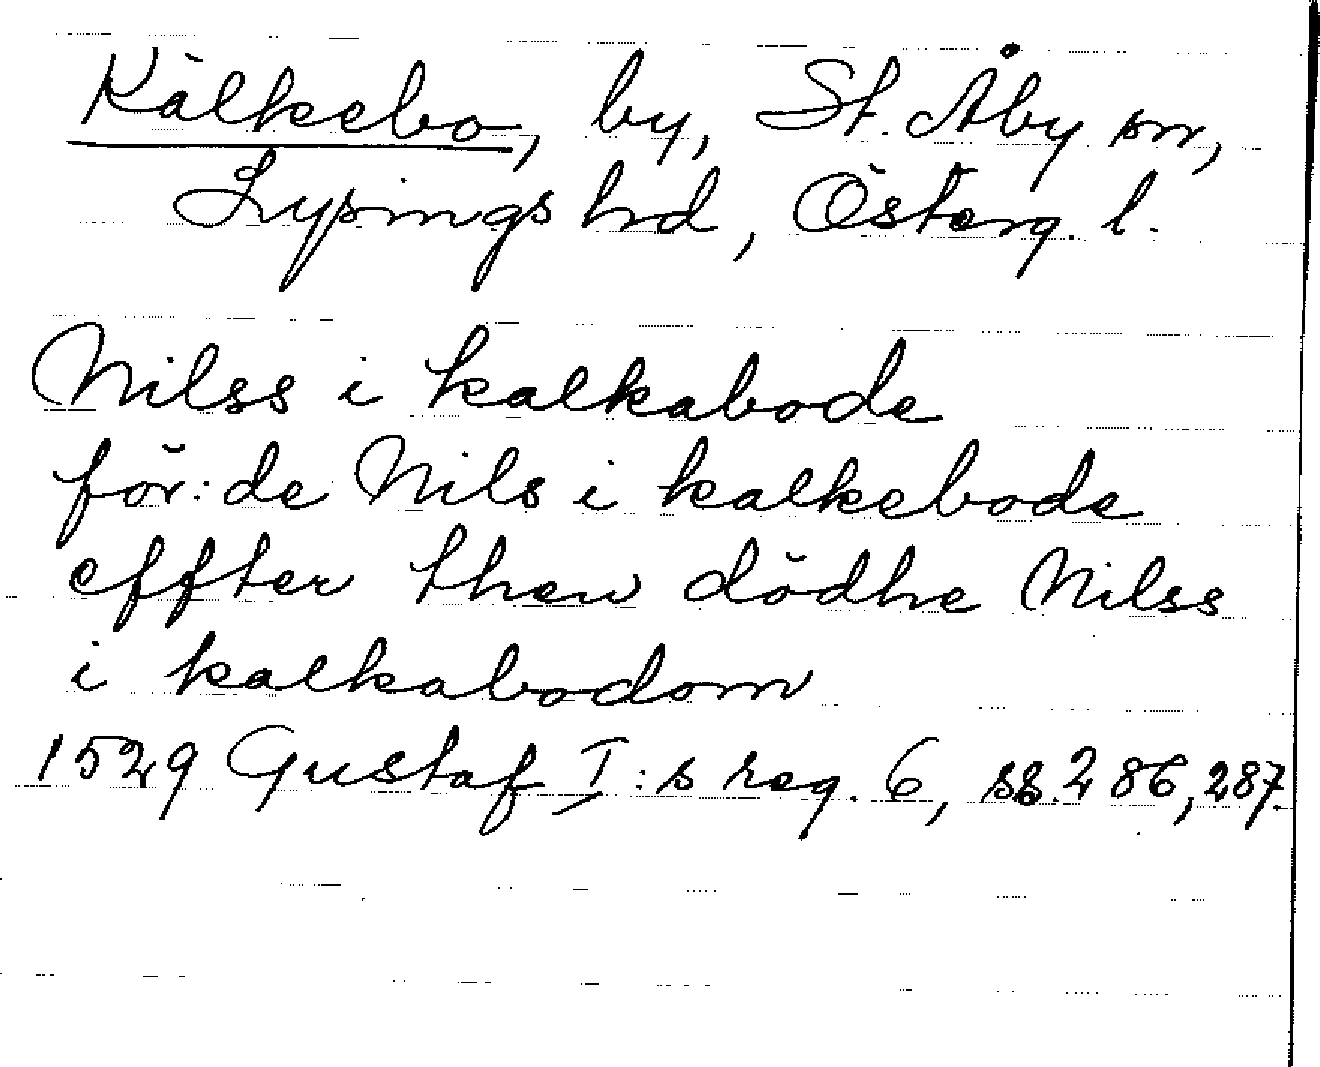 Kälkebo, by, St. Åby sn,
Lysings hd, Österg. l.
Nilss i kalkabode
för: de Nils i kalkebode
effter then dödhe Nilss
i kalkabodom
1529 Gustaf I:s reg. 6, ss. 286, 287.